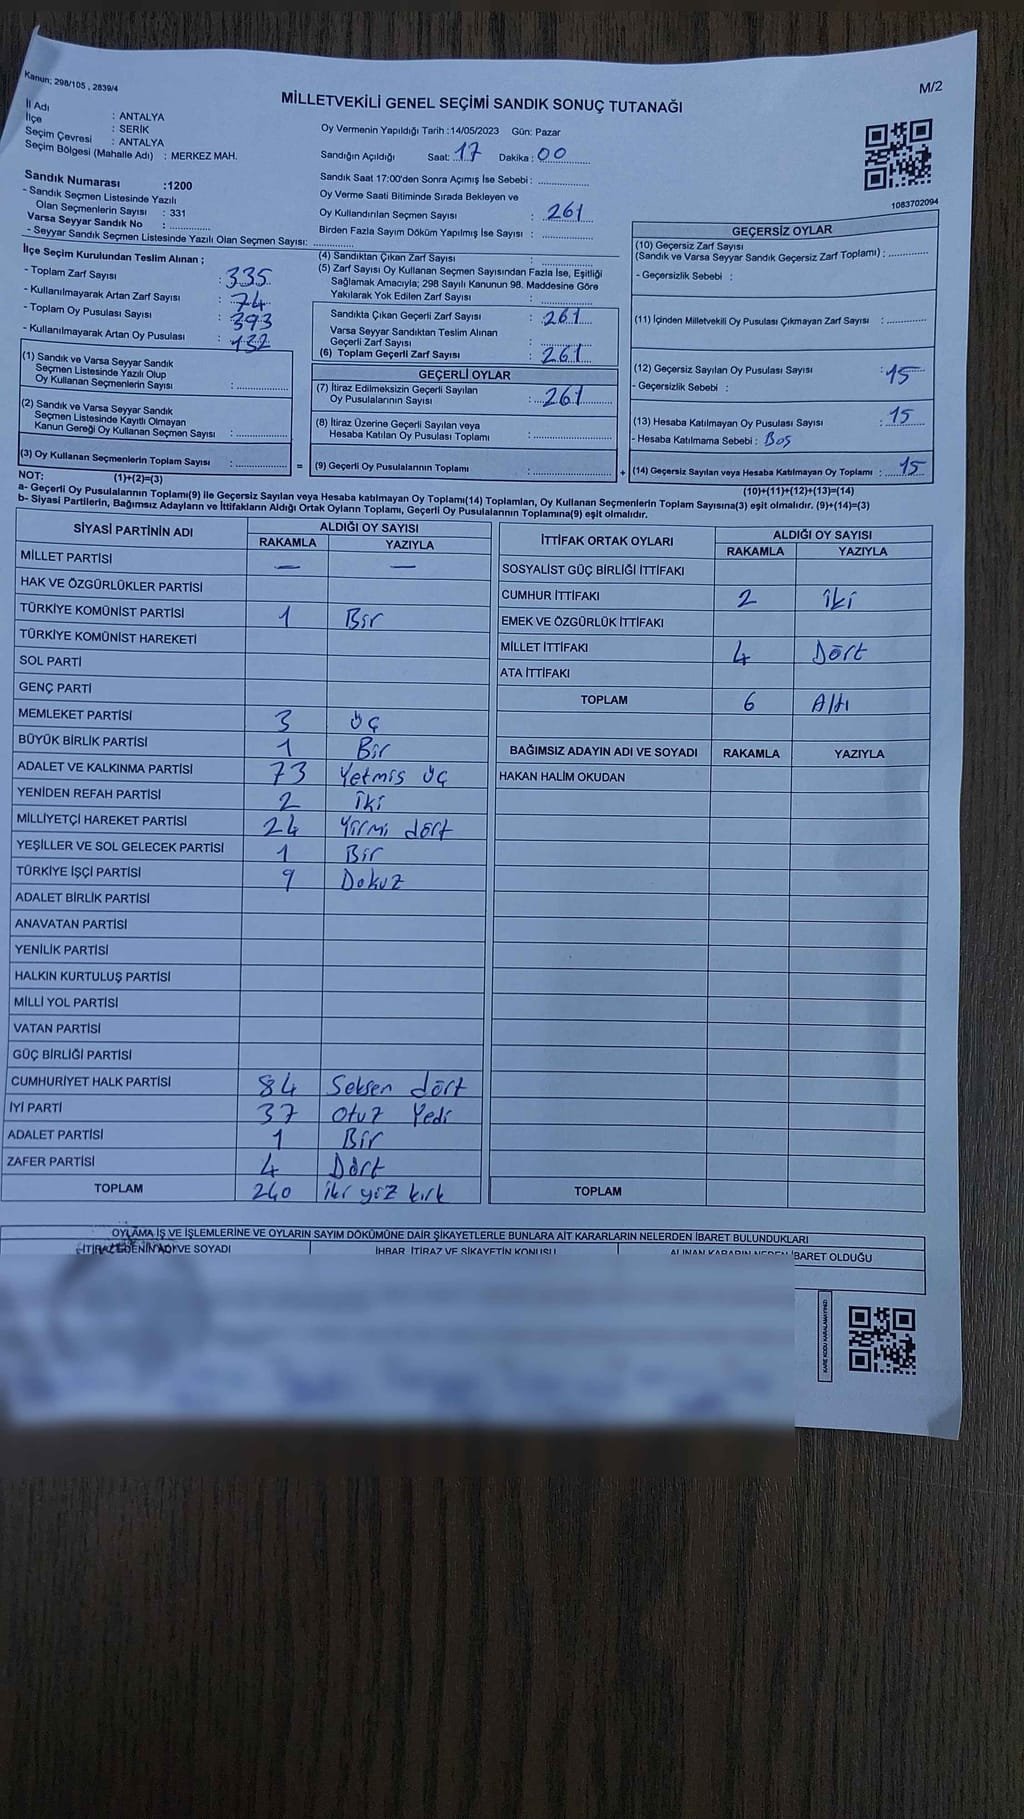 Kanun; 298/105 , 2839/4
M/2
MİLLETVEKİLİ GENEL SEÇİMİ SANDIK SONUÇ TUTANAĞI
İl Adı : ANTALYA
İlçe : SERİK
Seçim Çevresi : ANTALYA
Seçim Bölgesi (Mahalle Adı) : MERKEZ MAH.
Oy Vermenin Yapıldığı Tarih :14/05/2023 Gün: Pazar
Sandığın Açıldığı Saat: 17 Dakika : 00
Sandık Saat 17:00'den Sonra Açımış İse Sebebi :
Oy Verme Saati Bitiminde Sırada Bekleyen ve
Oy Kullandırılan Seçmen Sayısı : 261
Birden Fazla Sayım Döküm Yapılmış İse Sayısı :
1083702094
Sandık Numarası :1200
- Sandık Seçmen Listesinde Yazılı
Olan Seçmenlerin Sayısı : 331
Varsa Seyyar Sandık No :
- Seyyar Sandık Seçmen Listesinde Yazılı Olan Seçmen Sayısı:
İlçe Seçim Kurulundan Teslim Alınan ;
- Toplam Zarf Sayısı : 335
- Kullanılmayarak Artan Zarf Sayısı : 74
- Toplam Oy Pusulası Sayısı : 393
- Kullanılmayarak Artan Oy Pusulası : 132
(1) Sandık ve Varsa Seyyar Sandık
Seçmen Listesinde Yazılı Olup
Oy Kullanan Seçmenlerin Sayısı :
(2) Sandık ve Varsa Seyyar Sandık
Seçmen Listesinde Kayıtlı Olmayan
Kanun Gereği Oy Kullanan Seçmen Sayısı :
(3) Oy Kullanan Seçmenlerin Toplam Sayısı :
(1)+(2)=(3)
(4) Sandıktan Çıkan Zarf Sayısı :
(5) Zarf Sayısı Oy Kullanan Seçmen Sayısından Fazla İse, Eşitliği
Sağlamak Amacıyla; 298 Sayılı Kanunun 98. Maddesine Göre
Yakılarak Yok Edilen Zarf Sayısı :
Sandıkta Çıkan Geçerli Zarf Sayısı : 261
Varsa Seyyar Sandıktan Teslim Alınan
Geçerli Zarf Sayısı :
(6) Toplam Geçerli Zarf Sayısı : 261
GEÇERLİ OYLAR
(7) İtiraz Edilmeksizin Geçerli Sayılan
Oy Pusulalarının Sayısı : 261
(8) İtiraz Üzerine Geçerli Sayılan veya
Hesaba Katılan Oy Pusulası Toplamı :
= (9) Geçerli Oy Pusulalarının Toplamı :
GEÇERSİZ OYLAR
(10) Geçersiz Zarf Sayısı
(Sandık ve Varsa Seyyar Sandık Geçersiz Zarf Toplamı) :
- Geçersizlik Sebebi :
(11) İçinden Milletvekili Oy Pusulası Çıkmayan Zarf Sayısı :
(12) Geçersiz Sayılan Oy Pusulası Sayısı : 15
- Geçersizlik Sebebi :
(13) Hesaba Katılmayan Oy Pusulası Sayısı : 15
- Hesaba Katılmama Sebebi : Boş
+ (14) Geçersiz Sayılan veya Hesaba Katılmayan Oy Toplamı : 15
(10)+(11)+(12)+(13)=(14)
NOT:
a- Geçerli Oy Pusulalarının Toplamı(9) ile Geçersiz Sayılan veya Hesaba katılmayan Oy Toplamı(14) Toplamları, Oy Kullanan Seçmenlerin Toplam Sayısına(3) eşit olmalıdır. (9)+(14)=(3)
b- Siyasi Partilerin, Bağımsız Adayların ve İttifakların Aldığı Ortak Oyların Toplamı, Geçerli Oy Pusulalarının Toplamına(9) eşit olmalıdır.
SİYASİ PARTİNİN ADI ALDIĞI OY SAYISI
RAKAMLA YAZIYLA
MİLLET PARTİSİ — —
HAK VE ÖZGÜRLÜKLER PARTİSİ
TÜRKİYE KOMÜNİST PARTİSİ 1 Bir
TÜRKİYE KOMÜNİST HAREKETİ
SOL PARTİ
GENÇ PARTİ
MEMLEKET PARTİSİ 3 üç
BÜYÜK BİRLİK PARTİSİ 1 Bir
ADALET VE KALKINMA PARTİSİ 73 Yetmiş üç
YENİDEN REFAH PARTİSİ 2 iki
MİLLİYETÇİ HAREKET PARTİSİ 24 Yirmi dört
YEŞİLLER VE SOL GELECEK PARTİSİ 1 Bir
TÜRKİYE İŞÇİ PARTİSİ 9 Dokuz
ADALET BİRLİK PARTİSİ
ANAVATAN PARTİSİ
YENİLİK PARTİSİ
HALKIN KURTULUŞ PARTİSİ
MİLLİ YOL PARTİSİ
VATAN PARTİSİ
GÜÇ BİRLİĞİ PARTİSİ
CUMHURİYET HALK PARTİSİ 84 Seksen dört
İYİ PARTİ 37 Otuz Yedi
ADALET PARTİSİ 1 Bir
ZAFER PARTİSİ 4 Dört
TOPLAM 240 iki yüz kırk
İTTİFAK ORTAK OYLARI ALDIĞI OY SAYISI
RAKAMLA YAZIYLA
SOSYALİST GÜÇ BİRLİĞİ İTTİFAKI
CUMHUR İTTİFAKI 2 iki
EMEK VE ÖZGÜRLÜK İTTİFAKI
MİLLET İTTİFAKI 4 Dört
ATA İTTİFAKI
TOPLAM 6 Altı
BAĞIMSIZ ADAYIN ADI VE SOYADI RAKAMLA YAZIYLA
HAKAN HALİM OKUDAN
TOPLAM
OYLAMA İŞ VE İŞLEMLERİNE VE OYLARIN SAYIM DÖKÜMÜNE DAİR ŞİKAYETLERLE BUNLARA AİT KARARLARIN NELERDEN İBARET BULUNDUKLARI
İTİRAZ EDENİN ADI VE SOYADI İHBAR, İTİRAZ VE ŞİKAYETİN KONUSU ALINAN KARARIN NEDEN İBARET OLDUĞU